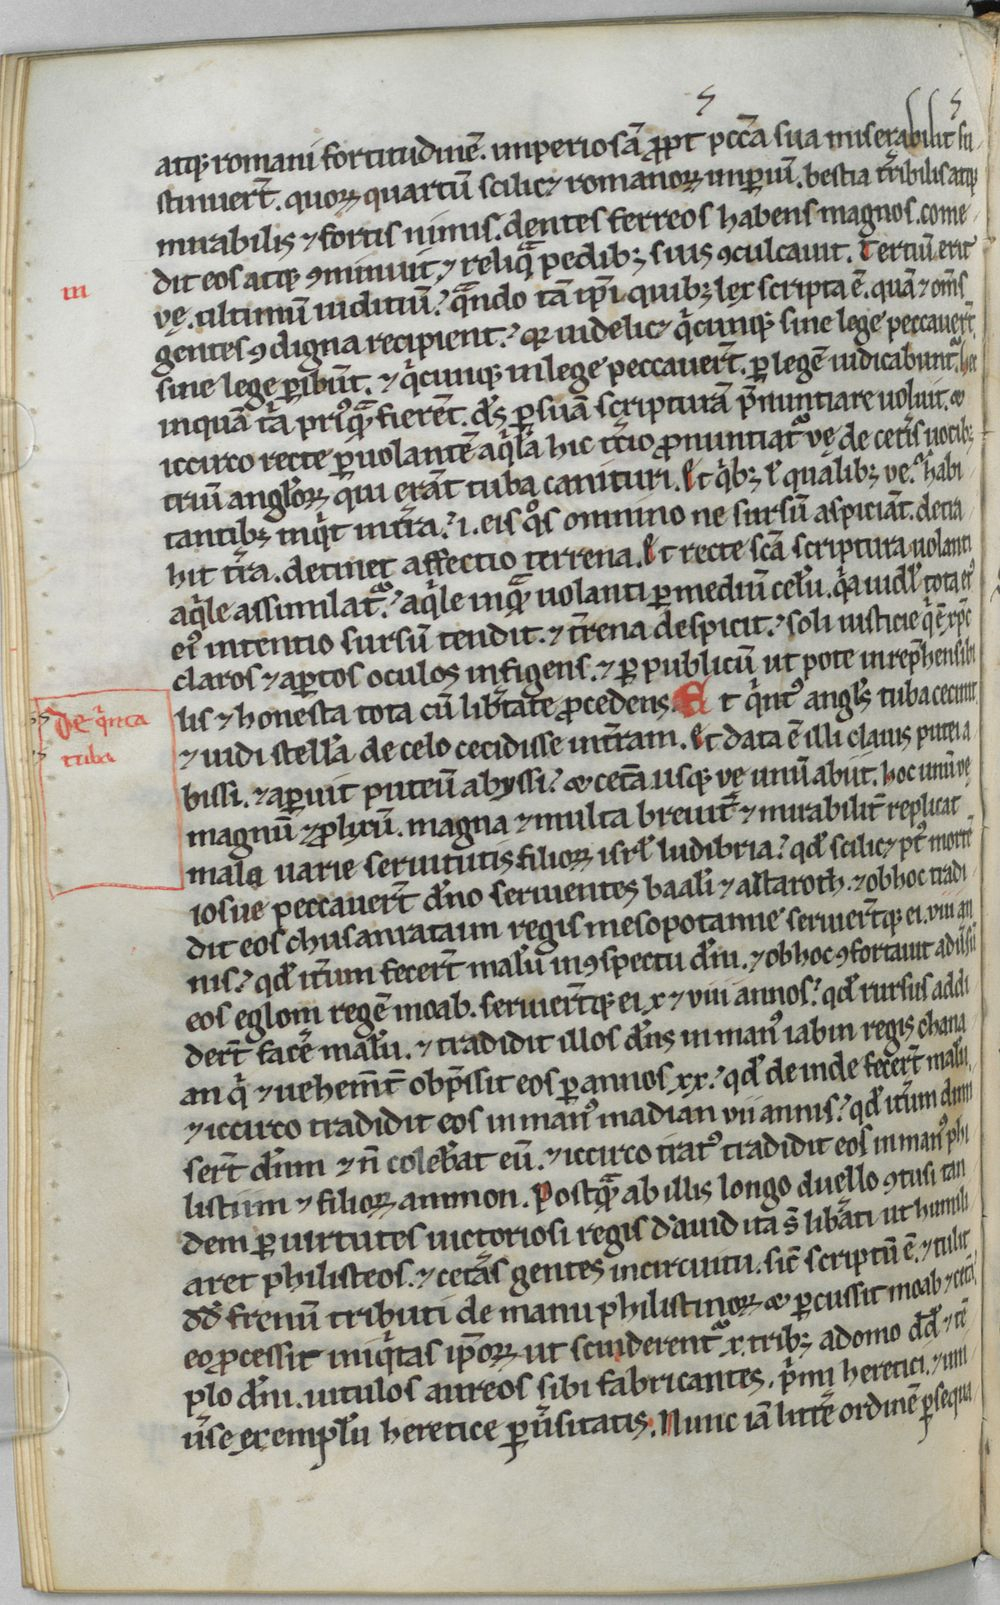 atq; romani fortitudinē. imperiosā ꝓpt̄ pcc̄a sua miserabilit̄ su
stinuert̄. quoꝝ quartū scilic&ꝫ romanoꝝ imꝑiū. bestia tr̄ribilis atq;
mirabilis ⁊ fortis nimis. dentes ferreos habens magnos. come
dit eos atq; ꝯminuit, ⁊ reliq̄ pedib; suis ꝯculcauit. Tertiū erit
iii
vę. ultimum iuditiū? qn̄do tā ip̄i quib; lex scripta ē. quā ⁊ om̄s
gentes ꝯdigna recipient? qꝛ uidelic& q̇cunq; sine lege peccauert̄.
sine lege ꝑibūt. ⁊ q̇cunq; in lege peccauert̄. ꝑ legē iudicabunt᷑. hec
inquā tā priꝰq̄ fierēt. dš ꝑ suā scripturā p̄nuntiare uoluit. &
iccirco recte ꝑ uolantē aq̇lā hic tc̄io ꝓnuntiat᷑ vę de cet̄is uocib;
triū angl̄oꝝ qui erāt tuba canituri. Et q̇b; ł qualib; ve? habi
tantib; inq̇t int̄ra? .i. eis q̊s omnino ne sursū aspiciāt. detra
hit tr̄a. detinet affectio terrena. Et recte sc̄a scriptura uolanti
aq̇le assimilat᷑? aq̇le inq̄ uolanti ꝑ mediū celū. q̇a uidł tota eiꝰ
eiꝰ intentio sursū tendit. ⁊ tr̄rena despicit? soli iusticie q̇ ē xp̄c
claros ⁊ aꝑtos oculos infigens. ⁊ ꝑ publicū ut pote inrep̄hensibi
lis ⁊ honesta tota cū libr̄tate ꝓcedens. Et q̇nt᷒ angl̄s tuba cecinit
De q̇nta
tuba
⁊ uidi stellā de celo cecidisse int̄ram. et data ē illi clauis putei a
bissi. ⁊ aꝑuit puteū abyssi? & cet̄a usq; vę unū abiit. hoc unū vę
magnū ⁊ ꝓlixū. magna ⁊ multa breuit̄ ⁊ mirabilit̄ replicat
mala uarie seruitutis filioꝝ isrł ludibria? qd̄ scilic& p᷒t mortē
iosue peccauert̄ dn̄o seruientes baali ⁊ astaroth. ⁊ ob hoc tradi
dit eos chusanrataim regis mesopotamie seruiert̄q; ei. viii an
nis? qd̄ it̄um fecert̄ malū in ꝯspectu dn̄i. ⁊ ob hoc ꝯfortauit adūsū
eos eglom regē moab. seruiert̄q; ei. x ⁊ viii annos? qd̄ rursus addi
dert̄ facē malū. ⁊ tradidit illos dn̄s in manꝰ iabin regis chana
an q̇ ⁊ uehem̄t obp̄ssit eos ꝑ annos xx? qd̄ de inde fecert̄ malū.
⁊ iccirco tradidit eos in manꝰ madian vii annis? qd̄ it̄um dimi
sert̄ dn̄m ⁊ n̄ colebat eū. ⁊ iccirco iratꝰ tradidit eos in manꝰ phi
listiim ⁊ filioꝝ ammon. Postq̄ ab illis longo duello ꝯtusi tan
dem ꝑ uirtutes uictoriosi regis dauid ita s̄ libr̄ati ut humili
aret philisteos. ⁊ cet̄as gentes in circuitu. sic̄ scriptū ē. ⁊ tulit
dd̄ frenū tributi de manu philistinoꝝ & ꝑcussit moab ⁊ cet̄a.
eo ꝓcessit iniq̇tas ip̄oꝝ. ut scinderent᷑. x. trib; a domo dd̄ ⁊ tē
plo dn̄i. uitulos aureos sibi fabricantes. p̄mi heretici. ⁊ uni
ūse exemplū heretice ꝑūsitatis. Nunc iā litt̄e ordinē ꝑsequa